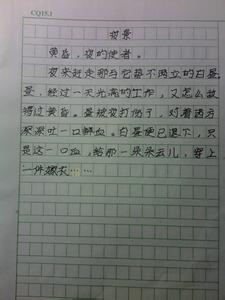 CQ15.1
夜景
黄昏，夜的使者。
夜来赶走那与它势不两立的白昼
昼，经过一天光满的工作，又怎么敌
得过黄昏。昼被夜打伤了，对着西方
深深吐一口鲜血。白昼便已退下，只
是这一口血，给那一朵朵云儿，穿上
一件嫁衣……